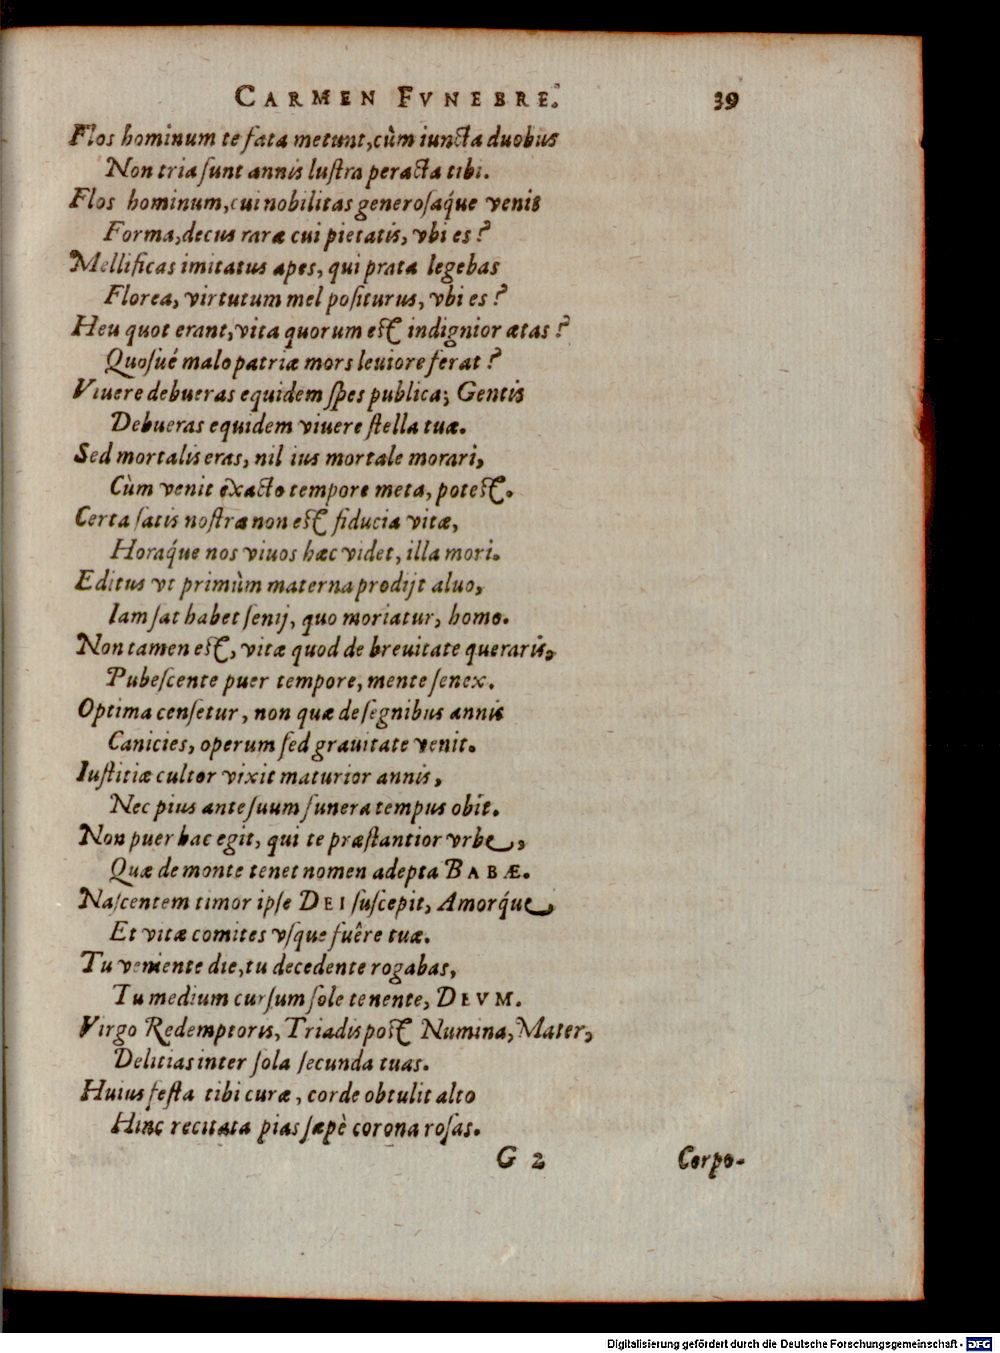 CARMEN FVNEBRE. 39
Flos hominum te fata metunt, cùm iuncta duobus
Non tria ſunt annis luſtra peracta tibi.
Flos hominum, cui nobilitas generoſaq́ue venis
Forma, decus raræ cui pietatis, vbi es?
Mellificas imitatus apes, qui prata legebas
Florea, virtutum mel poſiturus, vbi es?
Heu quot erant, vita quorum est indignior ætas?
Quoſué malo patriæ mors leuiore ferat?
Viuere debueras equidem ſpes publica; Gentis
Debueras equidem viuere ſtella tuæ.
Sed mortalis eras, nil ius mortale morari,
Cùm venit exacto tempore meta, potest.
Certa ſatis noſtræ non est fiducia vitæ,
Horaq́ue nos viuos hæc videt, illa mori.
Editus vt primùm materna prodijt aluo,
Iam ſat habet ſenij, quo moriatur, homo.
Non tamen est, vitæ quod de breuitate queraris,
Pubeſcente puer tempore, mente ſenex.
Optima cenſetur, non quæ de ſegnibus annis
Canicies, operum ſed grauitate venit.
Iuſtitiæ cultor vixit maturior annis,
Nec pius ante ſuum funera tempus obît.
Non puer hac egit, qui te præſtantior vrbe,
Quæ de monte tenet nomen adepta BABÆ.
Naſcentem timor ipſe DEI ſuſcepit, Amorq́ue,
Et vitæ comites vſque fuêre tuæ.
Tu veniente die, tu decedente rogabas,
Tu medium curſum ſole tenente, DEVM.
Virgo Redemptoris, Triadis post Numina, Mater,
Delitias inter ſola ſecunda tuas.
Huius feſta tibi curæ, corde obtulit alto
Hinc recitata pias ſæpè corona roſas.
G 2 Corpo-
Digitalisierung gefördert durch die Deutsche Forschungsgemeinschaft - DFG